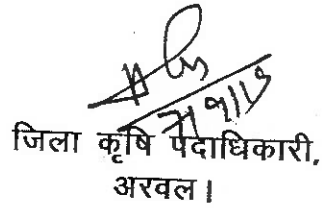 जिला कृषि पदाधिकारी,
अरवल।